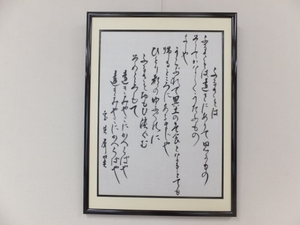 ふるさとは
ふるさとは遠きにありて思ふもの
そしてかなしくうたふもの
よしや
うらぶれて異土の乞食となるとても
帰るところにあるまじや
ひとり都のゆふぐれに
ふるさとおもひ涙ぐむ
そのこころもて
遠きみやこにかへらばや
遠きみやこにかへらばや
室生犀星